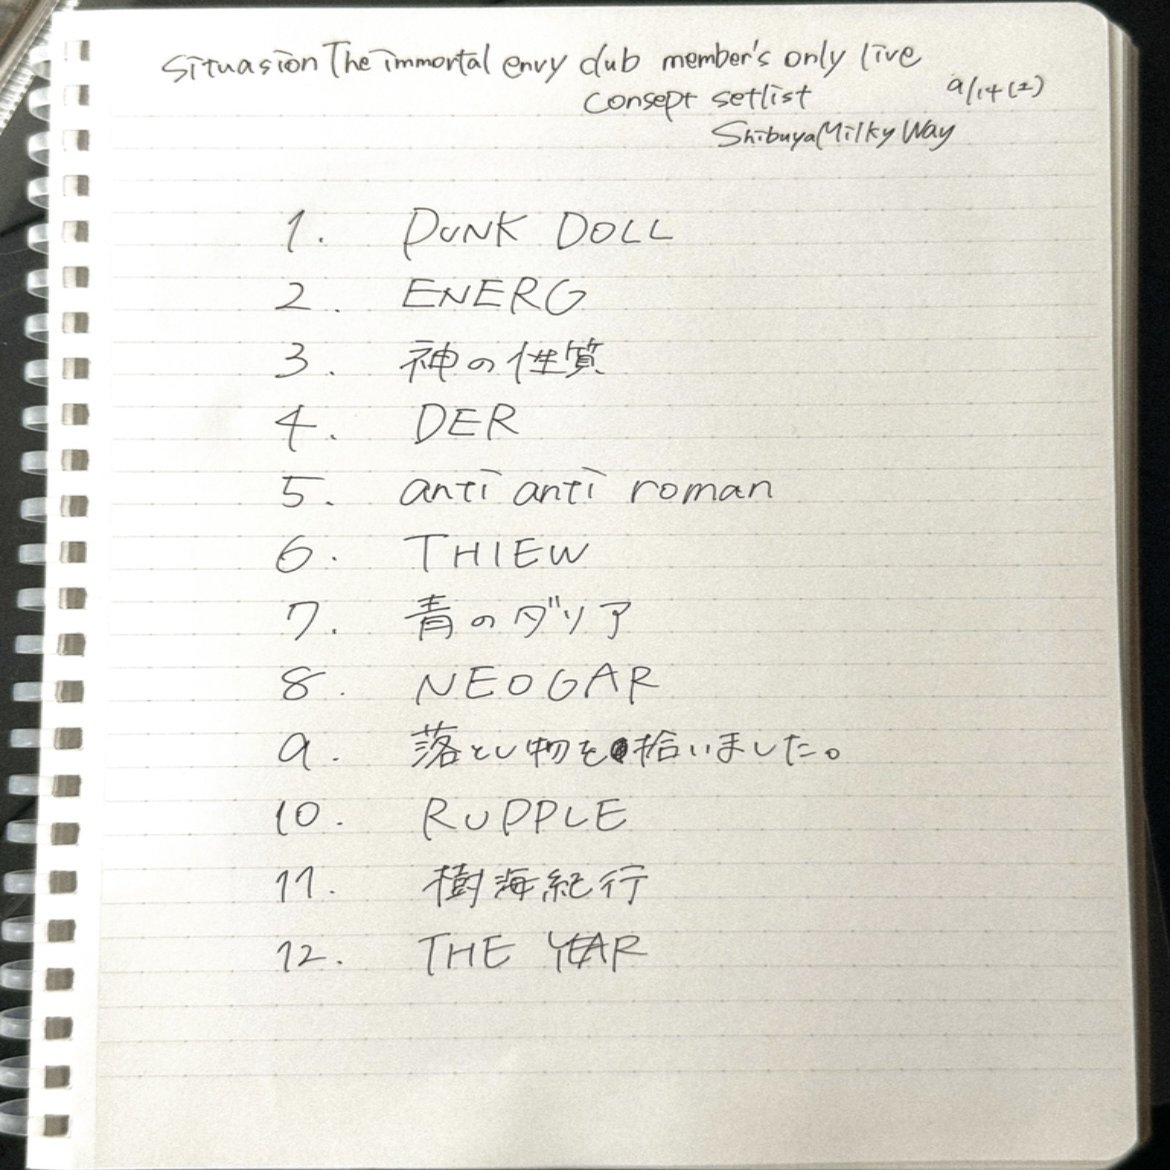 situasion The immortal envy club member's only live
consept setlist
9/14(土)
Shibuya Milky Way
1. PUNK DOLL
2. ENERG
3. 神の性質
4. DER
5. anti anti roman
6. THIEW
7. 青のダリア
8. NEOGAR
9. 落とし物を拾いました。
10. RUPPLE
11. 樹海紀行
12. THE YEAR